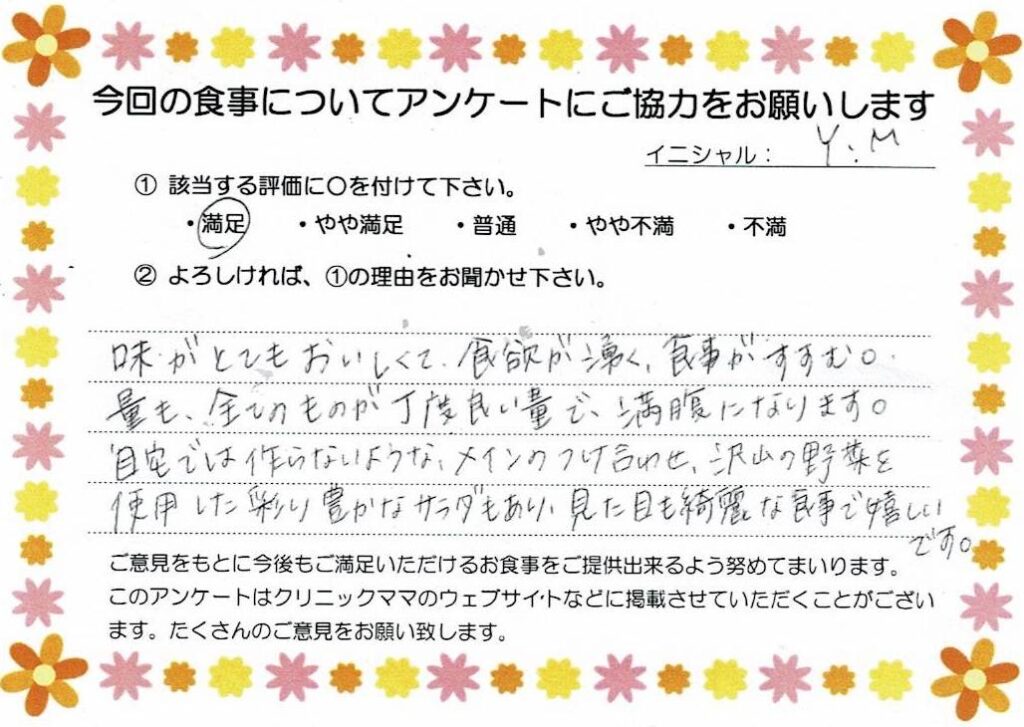 今回の食事についてアンケートにご協力をお願いします
イニシャル： Y.M
① 該当する評価に〇を付けて下さい。
・満足 ・やや満足 ・普通 ・やや不満 ・不満
② よろしければ、①の理由をお聞かせ下さい。
味がとてもおいしくて、食欲が湧く、食事がすすむ。
量も、全てのものが丁度良い量で、満腹になります。
自宅では作らないような、メインのつけ合わせ、沢山の野菜を
使用した彩り豊かなサラダもあり、見た目も綺麗な食事で嬉しい
です。
ご意見をもとに今後もご満足いただけるお食事をご提供出来るよう努めてまいります。
このアンケートはクリニックママのウェブサイトなどに掲載させていただくことがござい
ます。たくさんのご意見をお願い致します。